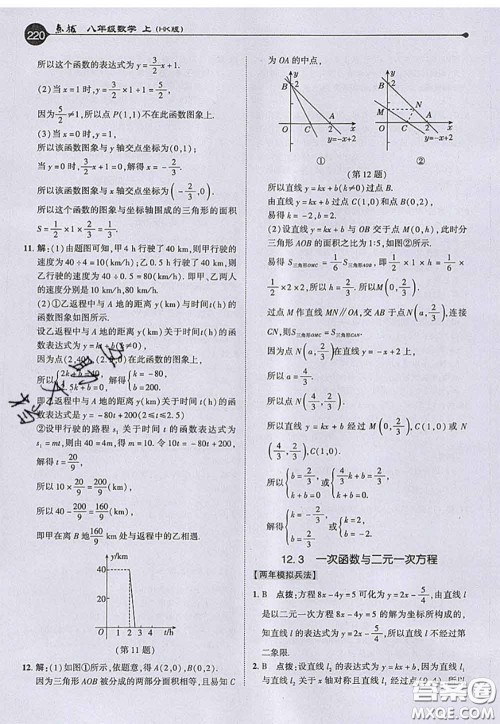 220 点拨 八年级数学 上 (HK版)
所以这个函数的表达式为 y=3/2 x+1.
(2)当 x=1 时, y=3/2×1+1=5/2,
因为 5/2≠1, 所以点 P(1,1)不在此函数图象上.
(3)当 x=0 时, y=1.
所以该函数图象与 y 轴交点坐标为(0,1).
当 y=0 时, 3/2 x+1=0, 解得 x=-2/3.
所以该函数图象与 x 轴交点坐标为(-2/3,0).
所以此函数的图象与坐标轴围成的三角形的面积
S=1/2×1×2/3=1/3.
11. 解:(1)由题图可知,甲 4 h 行驶了 40 km,则甲行驶的
速度为 40÷4=10(km/h);乙 0.5 h 行驶了 40 km,则乙
行驶的速度为 40÷0.5=80(km/h). 即甲、乙两人
的速度分别是 10 km/h、80 km/h.
(2)①乙返程中与 A 地的距离 y(km)与时间 t(h)的
函数图象如图所示.
设乙返程中与 A 地的距离 y(km)关于时间 t(h)的
函数表达式为 y=kt+b(k≠0).
因为点(2,40),(2.5,0)在此函数的图象上,
所以{2k+b=40, 2.5k+b=0,
解得{k=-80, b=200.
即乙返程中与 A 地的距离 y(km)关于时间 t(h)的函
数表达式是 y=-80t+200(2≤t≤2.5)
②设甲行驶的路程 s₁关于时间 t 的函数表达式为
s₁=mt,则由 40=4m,得 m=10. 令 10t=-80t+200,
解得 t=20/9,
所以 10×20/9=200/9(km),
所以 40-200/9=160/9(km),
即甲在离 B 地 160/9 km 处与返程中的乙相遇.
y/km
40
30
20
10
O 1 2 3 4 t/h
(第 11 题)
12. 解:(1)如图①所示,依题意,得 A(2,0),B(0,2).
因为三角形 AOB 被分成的两部分面积相等,且易知 C
为 OA 的中点,
y B 2 O C A 2 x y=-x+2 ①
y B 2 M N O C A 2 x y=-x+2 ②
(第 12 题)
所以直线 y=kx+b(k≠0)过点 B.
由直线 y=kx+b 过点 B(0,2),C(1,0),
易得 k=-2,b=2.
(2)设直线 y=kx+b 与 OB 交于点 M(0,h),此时分三
角形 AOB 的面积之比为 1:5,如图②所示.
易得 S三角形OMC=1/6 S三角形AOB,即 1/2×1×h=1/6×
1/2×2×2,所以 h=2/3.
过点 M 作直线 MN∥OA,交 AB 于点 N(a,2/3),连接
CN,则 S三角形OMC=S三角形CAN.
因为点 N(a,2/3)在直线 y=-x+2 上,
所以 a=4/3.
所以 N(4/3,2/3).
所以直线 y=kx+b 过点 M(0,2/3),C(1,0)或
N(4/3,2/3),C(1,0).
所以{b=2/3, k+b=0 或{4/3 k+b=2/3, k+b=0.
解得{b=2/3, k=-2/3 或{k=2, b=-2.
12.3 一次函数与二元一次方程
【两年模拟兵法】
1. B 点拨:方程 8x-4y=5 可化为 y=2x-5/4,由直线 l
是以二元一次方程 8x-4y=5 的解为坐标所构成的,
知直线 l 的表达式为 y=2x-5/4,所以直线 l 不经过第
二象限.
2. B 点拨:因为直线 l₁
作业帮
答案圈
MXQE.COM